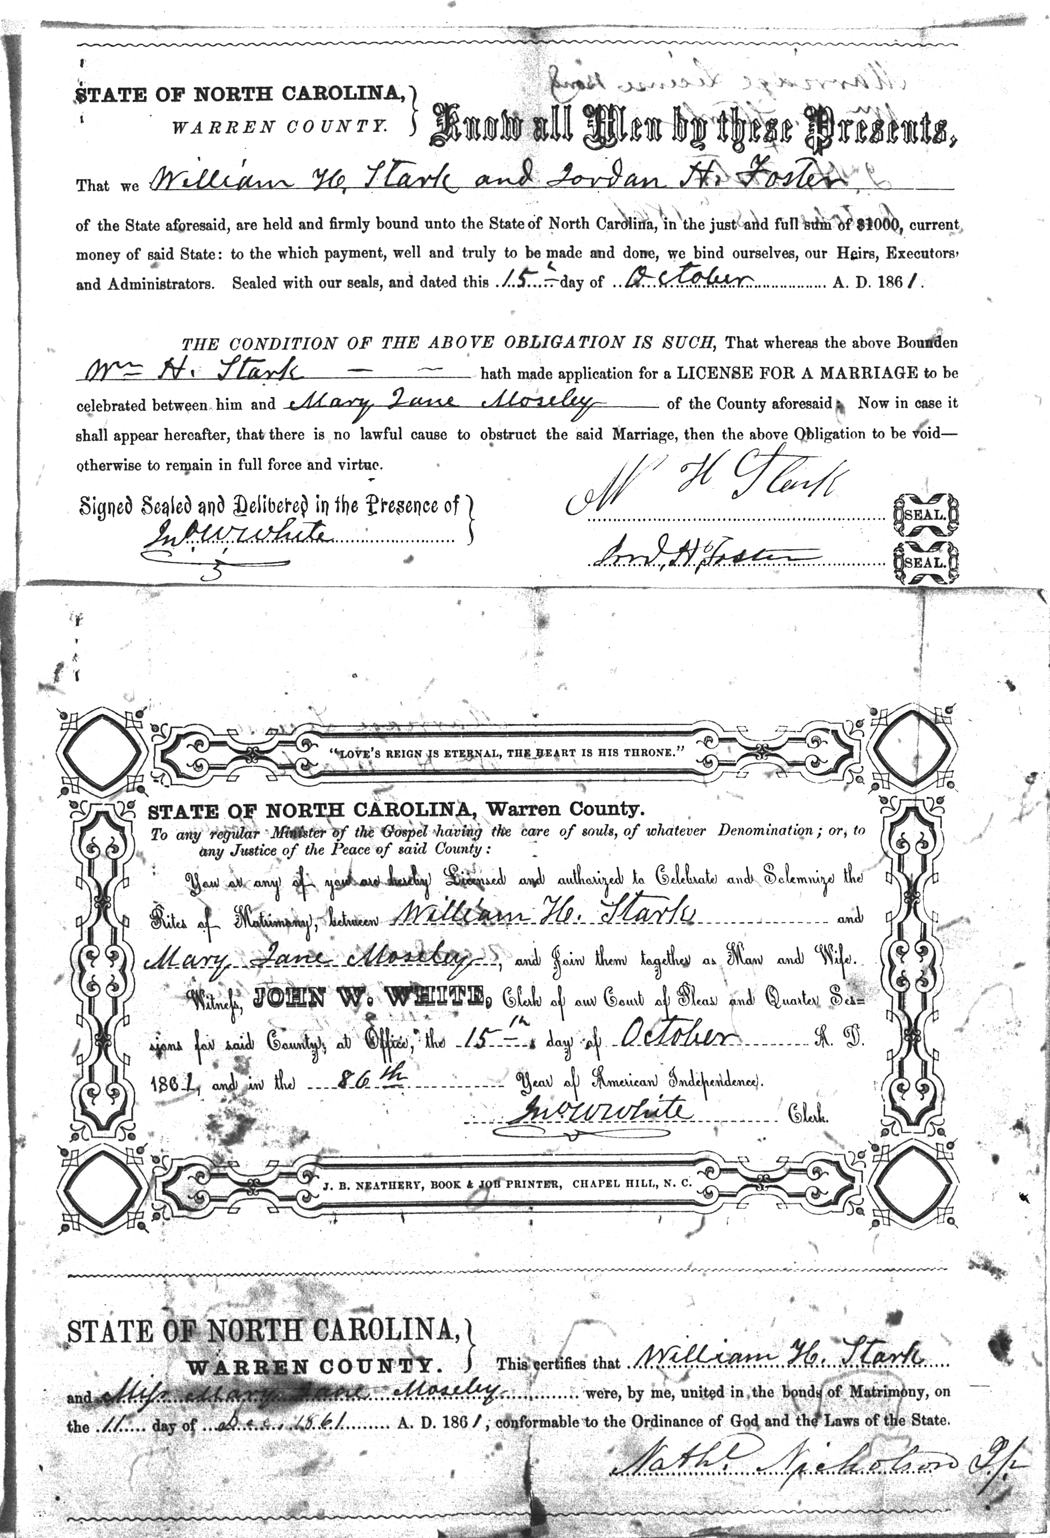 STATE OF NORTH CAROLINA,
WARREN COUNTY.
Know all Men by these Presents,
That we William H. Stark and Jordan H. Foster
of the State aforesaid, are held and firmly bound unto the State of North Carolina, in the just and full sum of $1000, current
money of said State: to the which payment, well and truly to be made and done, we bind ourselves, our Heirs, Executors,
and Administrators. Sealed with our seals, and dated this 15th day of October A. D. 1861.
THE CONDITION OF THE ABOVE OBLIGATION IS SUCH, That whereas the above Bounden
Wm H. Stark hath made application for a LICENSE FOR A MARRIAGE to be
celebrated between him and Mary Jane Moseley of the County aforesaid: Now in case it
shall appear hereafter, that there is no lawful cause to obstruct the said Marriage, then the above Obligation to be void—
otherwise to remain in full force and virtue.
Signed Sealed and Delivered in the Presence of
W H Stark SEAL.
Jno W White
Jord. H. Foster SEAL.
"LOVE'S REIGN IS ETERNAL, THE HEART IS HIS THRONE."
STATE OF NORTH CAROLINA, Warren County.
To any regular Minister of the Gospel having the care of souls, of whatever Denomination; or, to
any Justice of the Peace of said County:
You or any of you are hereby Licensed and authorized to Celebrate and Solemnize the
Rites of Matrimony, between William H. Stark and
Mary Jane Moseley, and Join them together as Man and Wife.
Witness, JOHN W. WHITE, Clerk of our Court of Pleas and Quarter Ses=
sions for said County, at Office, the 15th day of October A. D.
1861, and in the 86th Year of American Independence.
Jno W White Clerk.
J. B. NEATHERY, BOOK & JOB PRINTER, CHAPEL HILL, N. C.
STATE OF NORTH CAROLINA,
WARREN COUNTY.
This certifies that William H. Stark
and Miss Mary Jane Moseley were, by me, united in the bonds of Matrimony, on
the 11 day of Dec. 1861 A. D. 1861, conformable to the Ordinance of God and the Laws of the State.
Nathl. Nicholson J.P.